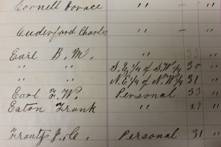 Cornell Horace " "
Underford Charles " "
Earl B. M. " "
" " S.E ¼ of S.W ¼ 30
" " N.E ¼ of N.W ¼ 31
Earl F. W. Personal 33
Eaton Frank " 17 "
Personal 31 "